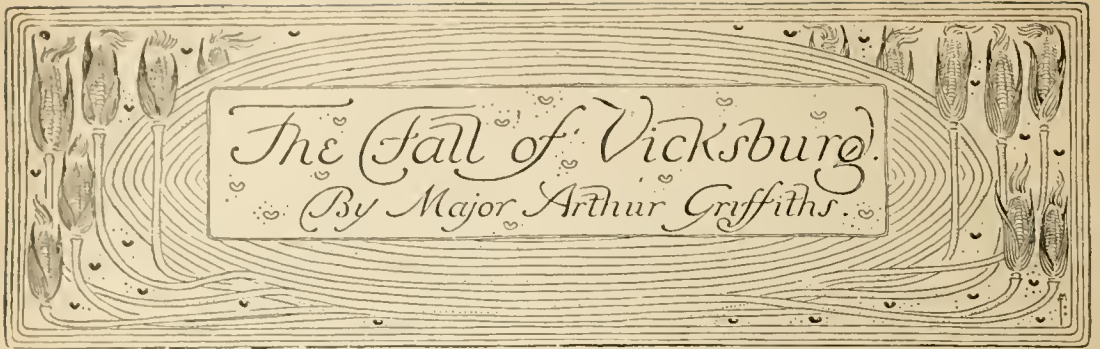 The Fall of Vicksburg.
By Major Arthur Griffiths.